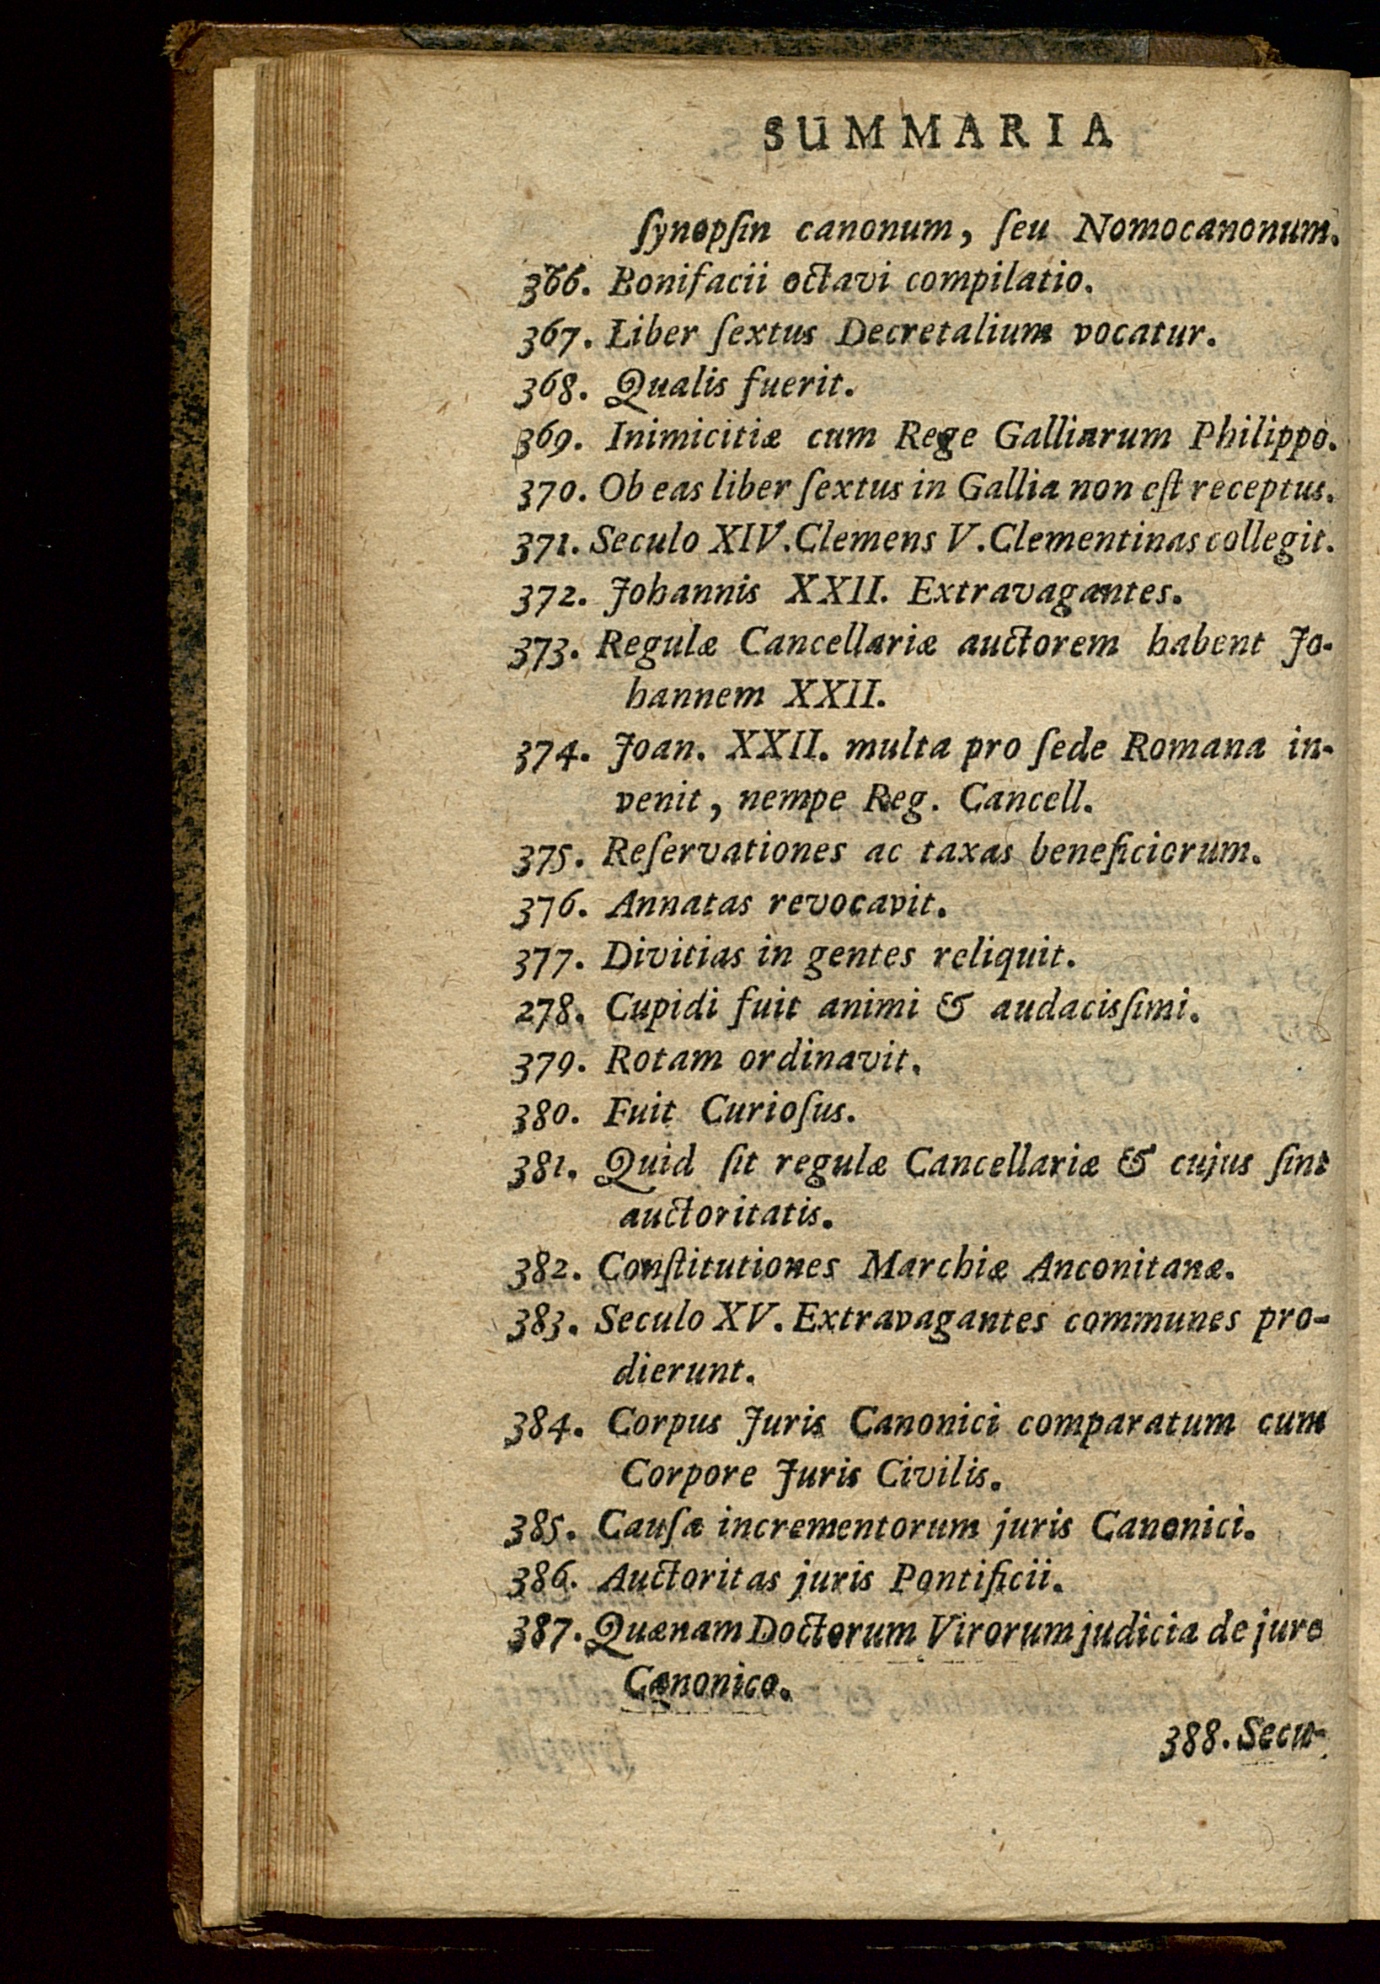 SUMMARIA
ſynopſin canonum, ſeu Nomocanonum.
366. Bonifacii octavi compilatio.
367. Liber ſextus Decretalium vocatur.
368. Qualis fuerit.
369. Inimicitiæ cum Rege Galliarum Philippo.
370. Ob eas liber ſextus in Gallia non eſt receptus.
371. Seculo XIV. Clemens V. Clementinas collegit.
372. Johannis XXII. Extravagantes.
373. Regulæ Cancellariæ auctorem habent Jo-
hannem XXII.
374. Joan. XXII. multa pro ſede Romana in-
venit, nempe Reg. Cancell.
375. Reſervationes ac taxas beneficiorum.
376. Annatas revocavit.
377. Divitias in gentes reliquit.
278. Cupidi fuit animi & audacisſimi.
379. Rotam ordinavit.
380. Fuit Curioſus.
381. Quid ſit regulæ Cancellariæ & cujus ſint
auctoritatis.
382. Conſtitutiones Marchiæ Anconitanæ.
383. Seculo XV. Extravagantes communes pro-
dierunt.
384. Corpus Juris Canonici comparatum cum
Corpore Juris Civilis.
385. Cauſæ incrementorum juris Canonici.
386. Auctoritas juris Pontificii.
387. Quænam Doctorum Virorum judicia de jure
Canonico.
388. Secu-